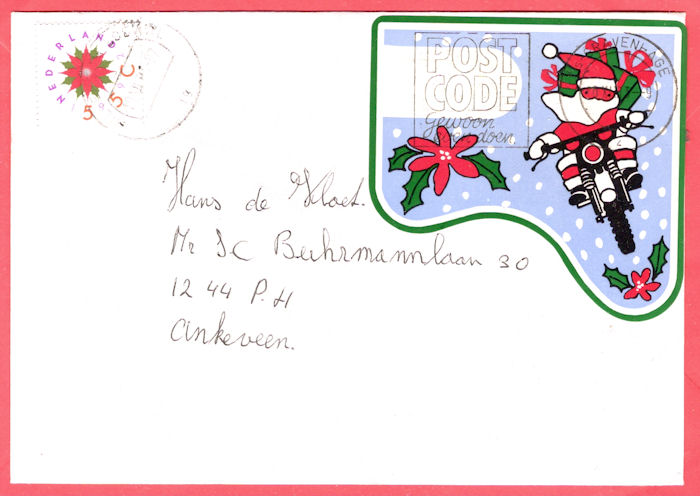 NEDERLAND
55 C
POST
CODE
Gewoon
even doen
Hans de Kloet.
Mr JC Buhrmannlaan 30
1244 P.H
Ankeveen.